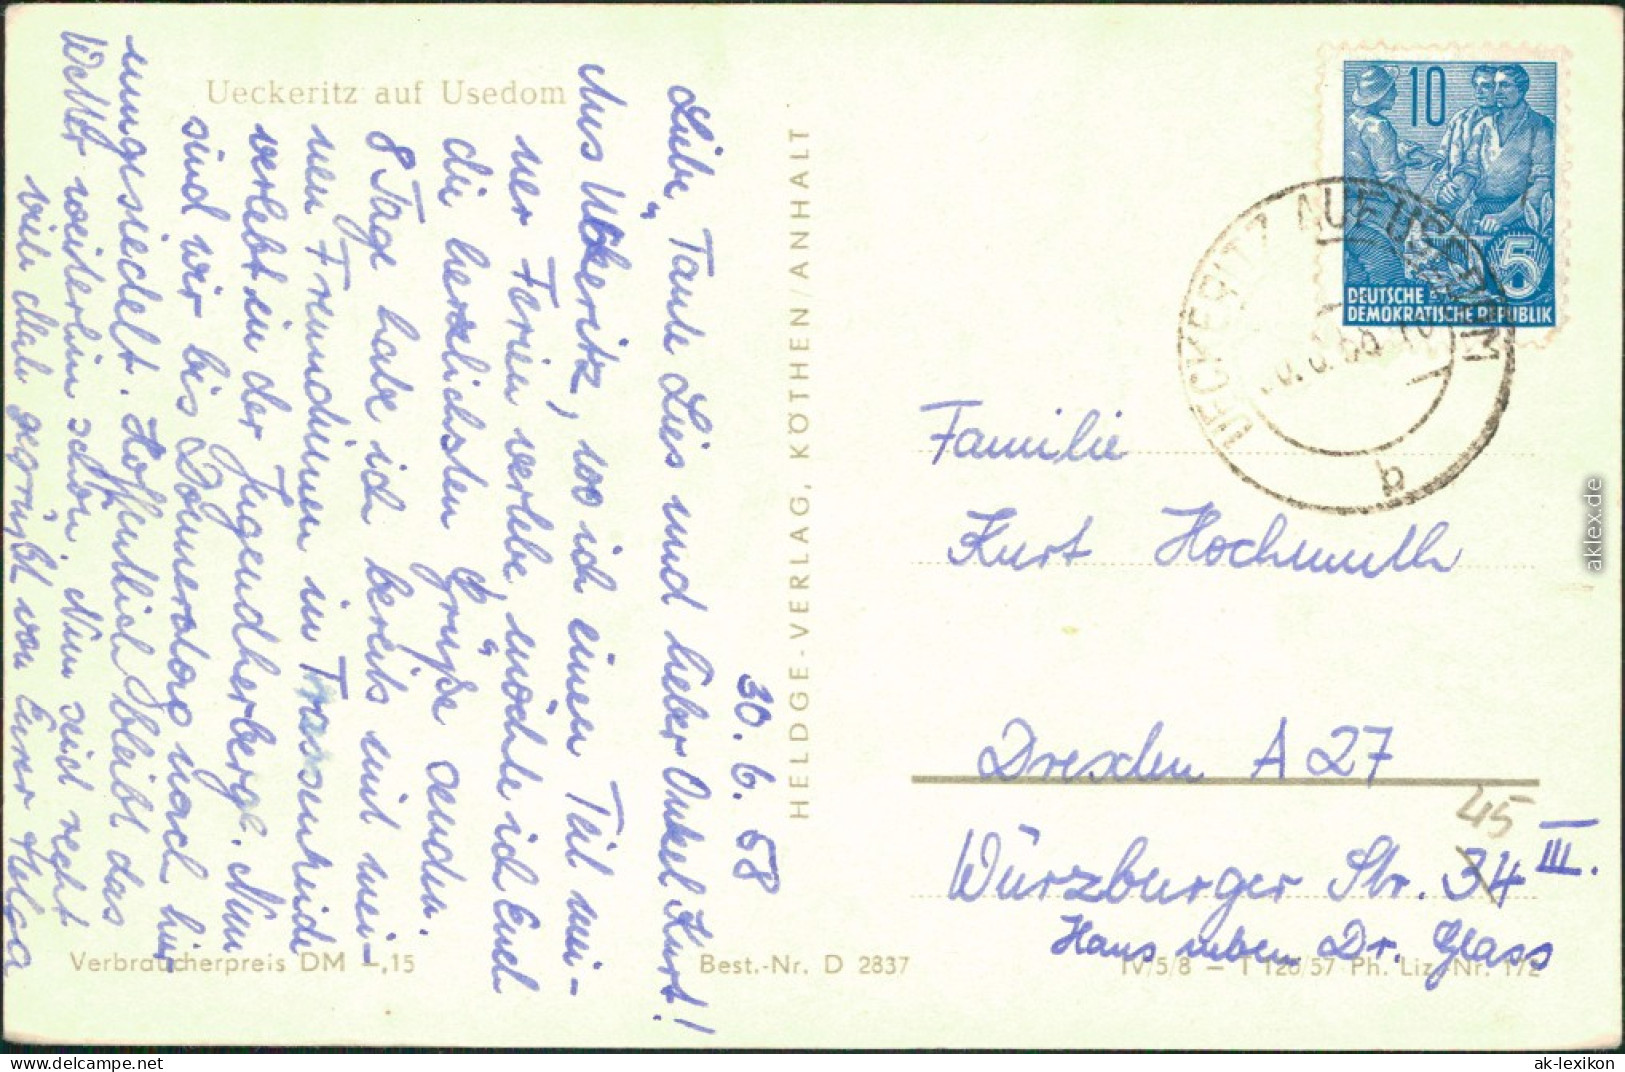 Ueckeritz auf Usedom
30. 6. 58
Liebe Tante Lies und lieber Onkel Kurt!
Aus Ückeritz, wo ich einen Teil mei-
ner Ferien verlebe, möchte ich Euch
die herzlichsten Grüße senden.
8 Tage habe ich bereits mit mei-
nen Freundinnen in Trassenheide
verlebt in der Jugendherberge. Nun
sind wir bis Donnerstag nach hier
umgesiedelt. Hoffentlich bleibt das
Wetter weiterhin schön. Nun seid recht
viele Male gegrüßt von Eurer Helga
Verbraucherpreis DM –,15
HELDGE-VERLAG, KÖTHEN/ANHALT
Best.-Nr. D 2837
10
DEUTSCHE
DEMOKRATISCHE REPUBLIK
5
UECKERITZ AUF USEDOM
b
Familie
Kurt Hochmuth
Dresden A 27
45
Würzburger Str. 34 III.
Haus neben Dr. Glass
IV/5/8 – T 126/57 Ph. Liz.-Nr. 172
aklex.de
www.delcampe.net
ak-lexikon